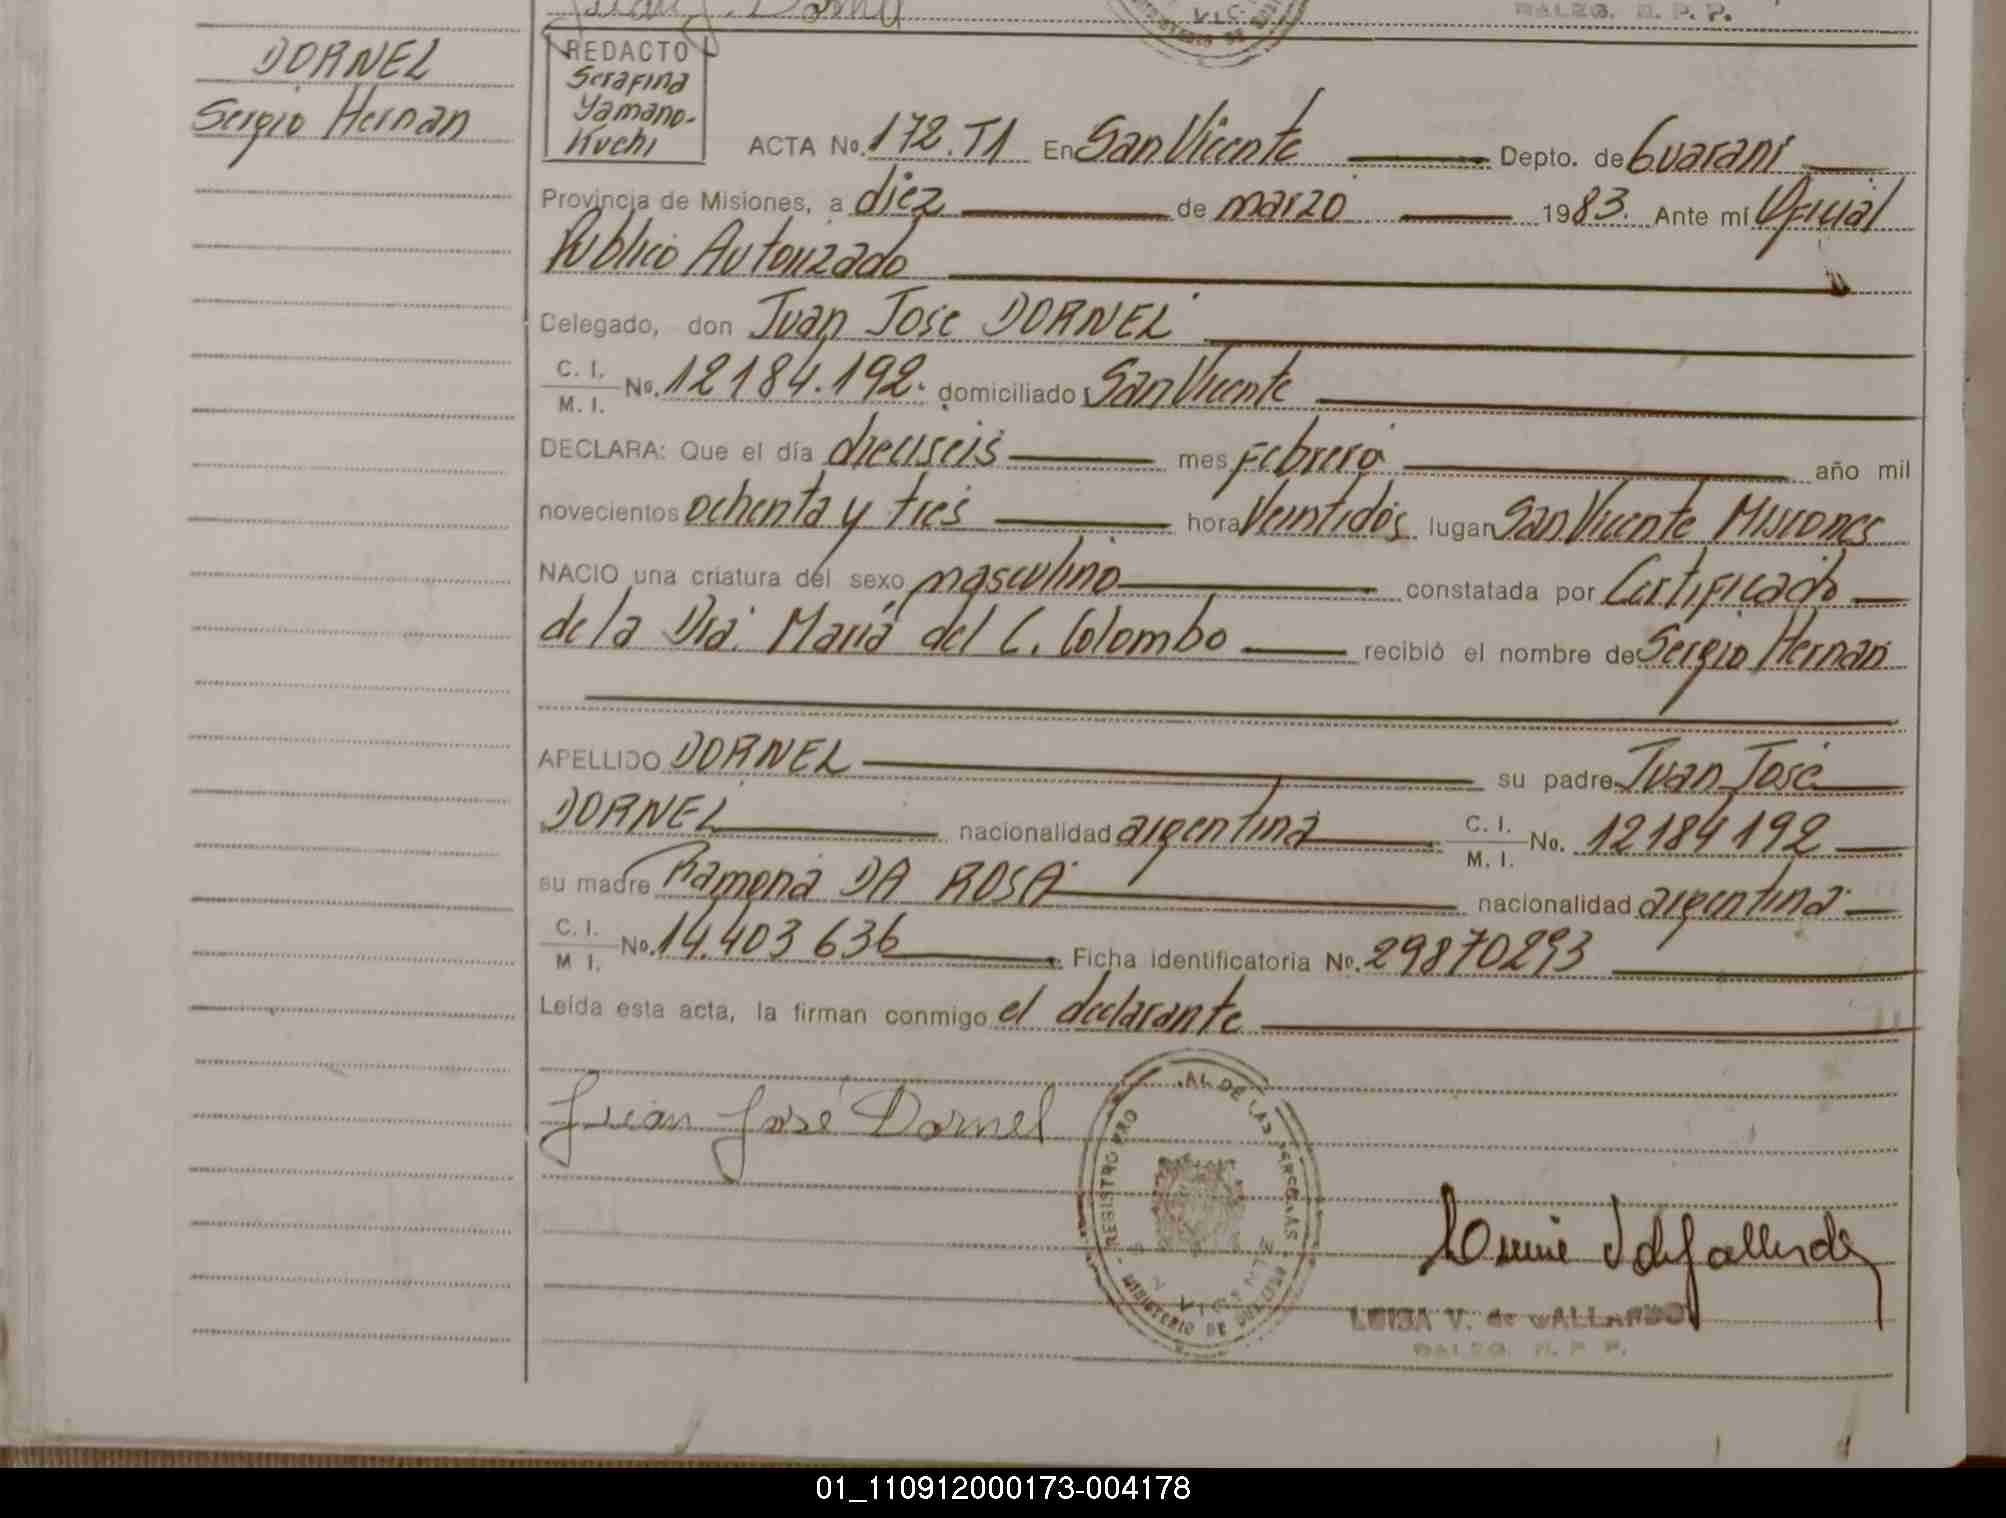 DORNEL
Sergio Hernan
REDACTO
Serafina
Yamano-
Kuchi
ACTA No. 172.T1 En San Vicente Depto. de Guaraní
Provincia de Misiones, a diez de marzo 1983. Ante mí Oficial
Publico Autorizado
Delegado, don Juan José DORNEL
C. I. / M. I. No. 12184.192. domiciliado San Vicente
DECLARA: Que el día dieciseis mes Febrero año mil
novecientos ochenta y tres hora Veintidós lugar San Vicente Misiones
NACIO una criatura del sexo masculino constatada por Certificado
de la Dra. María del C. Colombo recibió el nombre de Sergio Hernan
APELLIDO DORNEL su padre Juan José
DORNEL nacionalidad argentina C. I. / M. I. No. 12184192
su madre Ramona DA ROSA nacionalidad argentina
C. I. / M I. No. 14.403 636 Ficha identificatoria No. 29870293
Leída esta acta, la firman conmigo el declarante
Juan José Dornel
REGISTRO PRO AL DE LAS PERSONAS
MINISTERIO DE GOBIERNO
VICENTE
LUISA V. de GALLARDO
01_110912000173-004178